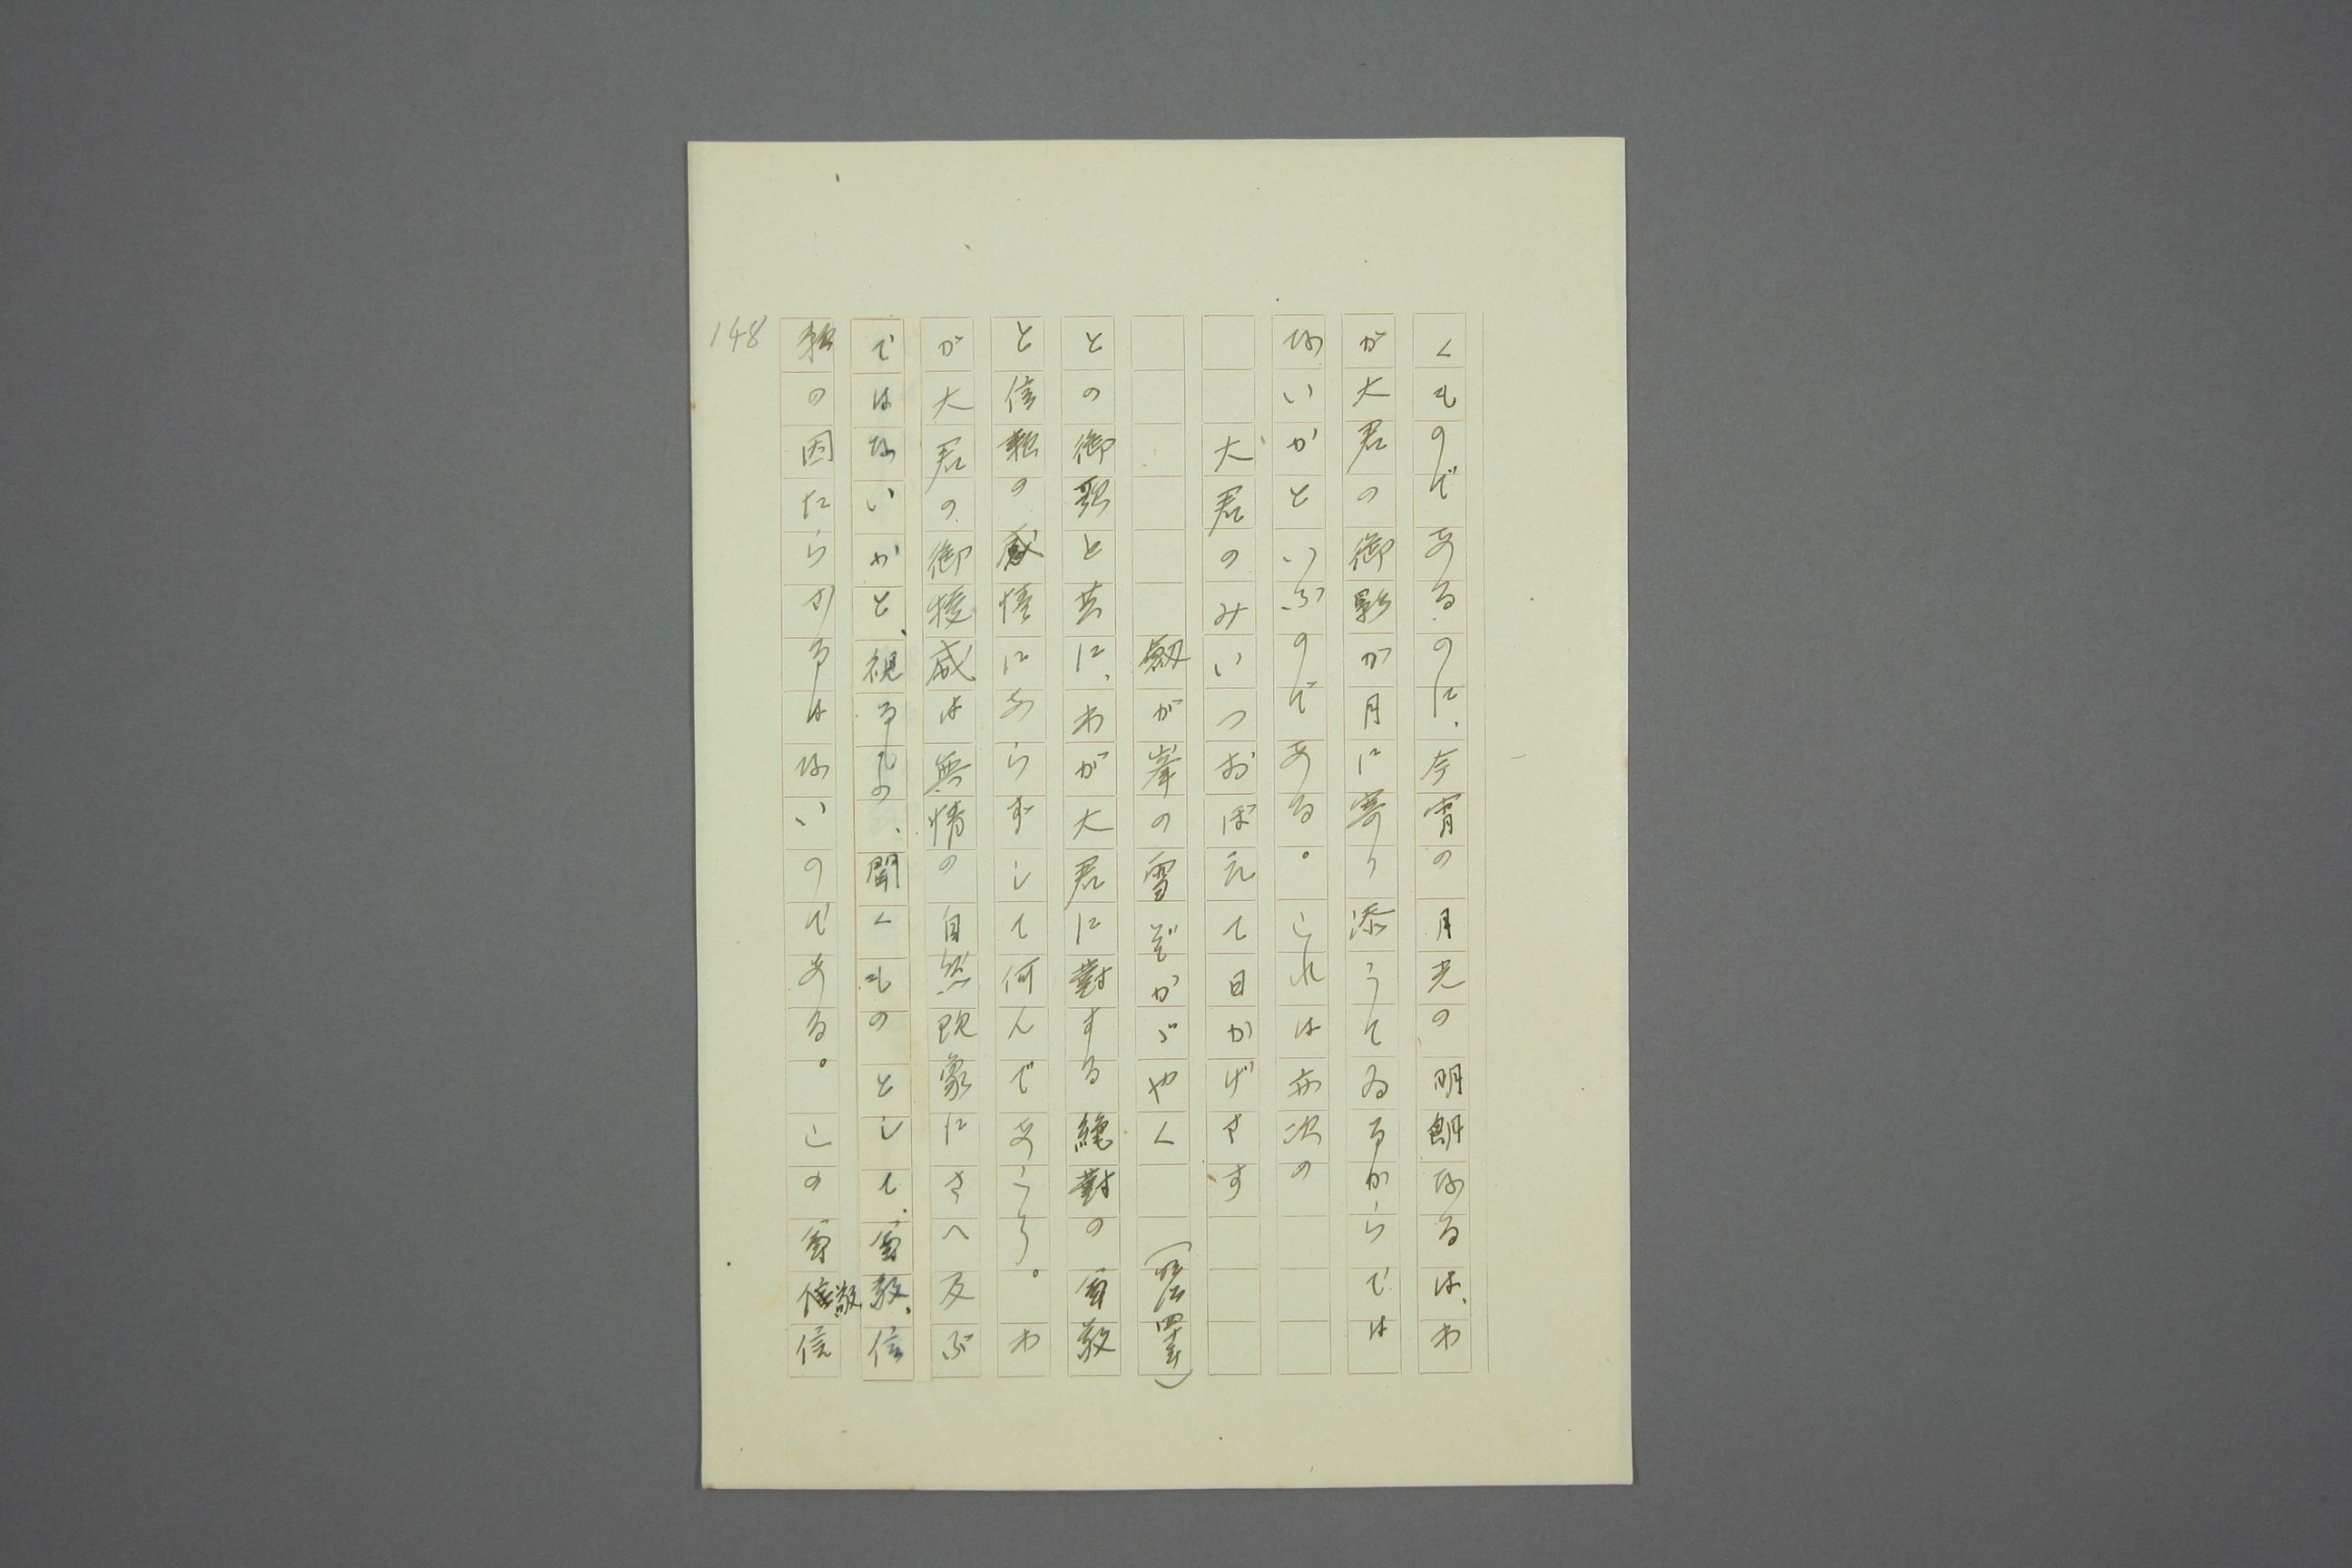 くものであるのに、今宵の月光の明朗なるは、わ
が大君の御影が月に寄り添うてゐるからでは
ないかといふのである。これは亦次の
大君のみいつおぼえて日かげさす
劔が峯の雪ぞかゞやく
との御歌と共に、わが大君に對する絶對の尊敬
と信頼の感情にあらずして何んであらう。わ
が大君の御稜威は無情の自然現象にさへ及ぶ
ではないかと、視るもの、聞くものとして、尊敬、信
頼の因たらざるはないのである。この尊敬信
148